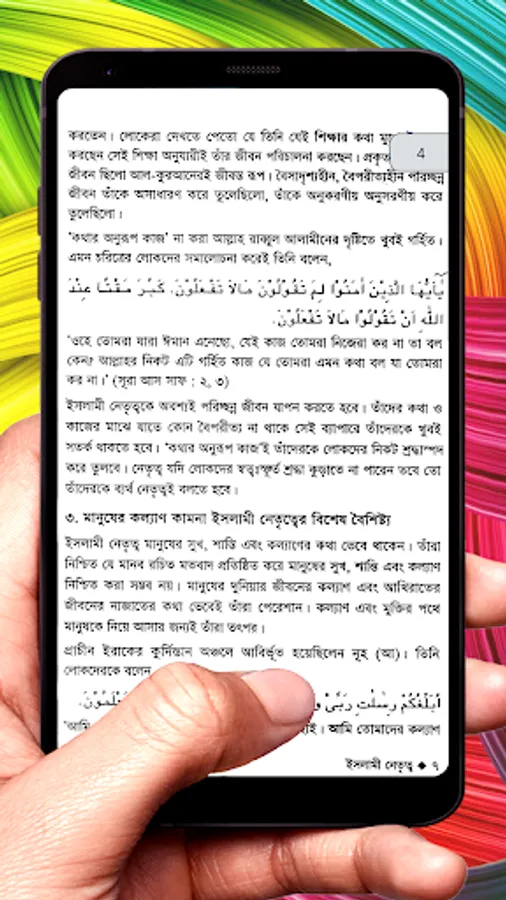 করতেন। লোকেরা দেখতে পেতো যে তিনি যেই শিক্ষার কথা
4
করছেন সেই শিক্ষা অনুযায়ীই তাঁর জীবন পরিচালনা করছেন।
জীবন ছিলো আল-কুরআনেরই জীবন্ত রূপ। বৈসাদৃশ্যহীন, বৈপরীত্যহীন পরিচ্ছন্ন
জীবন তাঁকে অসাধারণ করে তুলেছিলো, তাঁকে অনুকরণীয় অনুসরণীয় করে
তুলেছিলো।
'কথার অনুরূপ কাজ' না করা আল্লাহ রাব্বুল আলামীনের দৃষ্টিতে খুবই গর্হিত।
এমন চরিত্রের লোকদের সমালোচনা করেই তিনি বলেন,
يٰۤاَيُّهَا الَّذِيْنَ اٰمَنُوْا لِمَ تَقُوْلُوْنَ مَالاَ تَفْعَلُوْنَ. كَبُرَ مَقْتًا عِنْدَ
اللّٰهِ اَنْ تَقُوْلُوْا مَالاَ تَفْعَلُوْنَ.
'ওহে তোমরা যারা ঈমান এনেছো, যেই কাজ তোমরা নিজেরা কর না তা বল
কেন? আল্লাহর নিকট এটি গর্হিত কাজ যে তোমরা এমন কথা বল যা তোমরা
কর না।' (সূরা আস সাফ : ২, ৩)
ইসলামী নেতৃত্বকে অবশ্যই পরিচ্ছন্ন জীবন যাপন করতে হবে। তাঁদের কথা ও
কাজের মাঝে যাতে কোন বৈপরীত্য না থাকে সেই ব্যাপারে তাঁদেরকে খুবই
সতর্ক থাকতে হবে। 'কথার অনুরূপ কাজ'ই তাঁদেরকে লোকদের নিকট শ্রদ্ধাস্পদ
করে তুলবে। নেতৃত্ব যদি লোকদের স্বতঃস্ফূর্ত শ্রদ্ধা কুড়াতে না পারেন তবে তো
তাঁদেরকে ব্যর্থ নেতৃত্বই বলতে হবে।
৩. মানুষের কল্যাণ কামনা ইসলামী নেতৃত্বের বিশেষ বৈশিষ্ট্য
ইসলামী নেতৃত্ব মানুষের সুখ, শান্তি এবং কল্যাণের কথা ভেবে থাকেন। তাঁরা
নিশ্চিত যে মানব রচিত মতবাদ প্রতিষ্ঠিত করে মানুষের সুখ, শান্তি এবং কল্যাণ
নিশ্চিত করা সম্ভব নয়। মানুষের দুনিয়ার জীবনের কল্যাণ এবং আখিরাতের
জীবনের নাজাতের কথা ভেবেই তাঁরা পেরেশান। কল্যাণ এবং মুক্তির পথে
মানুষকে নিয়ে আসার জন্যই তাঁরা তৎপর।
প্রাচীন ইরাকের কুর্দিস্তান অঞ্চলে আবির্ভূত হয়েছিলেন নূহ (আ)। তিনি
লোকদেরকে বলেন
اُبَلِّغُكُمْ رِسٰلٰتِ رَبِّىْ
'আমি তোমাদের কল্যাণ
ইসলামী নেতৃত্ব ◆ ৭